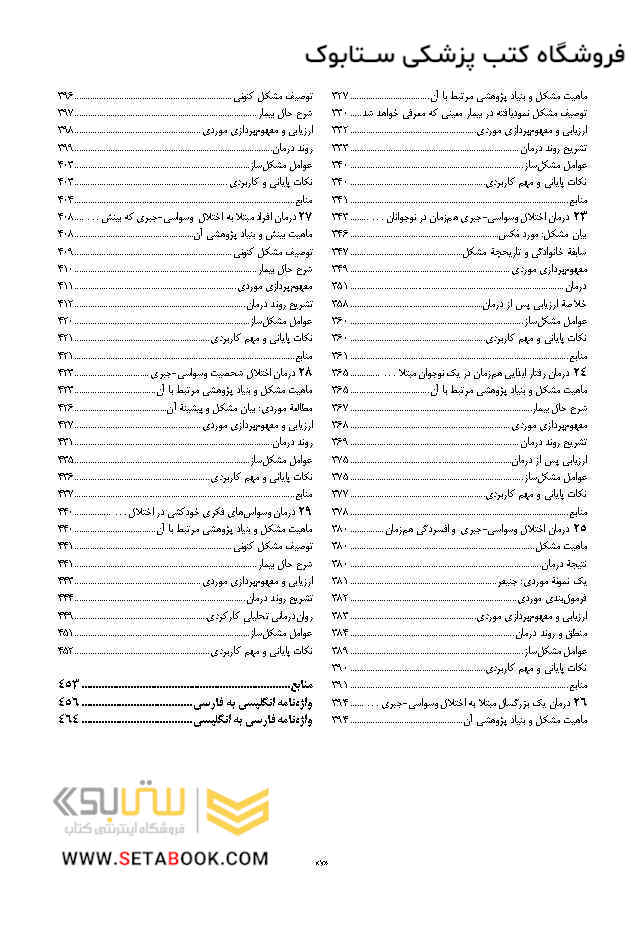 فروشگاه کتب پزشکی ستابوک
ماهیت مشکل و بنیاد پژوهشی مرتبط با آن ... ۳۲۷
توصیف مشکل نمودیافته در بیمار معینی که معرفی خواهد شد ... ۳۳۰
ارزیابی و مفهوم‌پردازی موردی ... ۳۳۲
تشریح روند درمان ... ۳۳۳
عوامل مشکل‌ساز ... ۳۴۰
نکات پایانی و مهم کاربردی ... ۳۴۰
منابع ... ۳۴۱
۲۳ درمان اختلال وسواسی-جبری هم‌زمان در نوجوانان ... ۳۴۳
بیان مشکل: مورد مَکس ... ۳۴۶
سابقهٔ خانوادگی و تاریخچهٔ مشکل ... ۳۴۷
مفهوم‌پردازی موردی ... ۳۴۹
درمان ... ۳۵۱
خلاصهٔ ارزیابی پس از درمان ... ۳۵۸
عوامل مشکل‌ساز ... ۳۶۰
نکات پایانی و مهم کاربردی ... ۳۶۰
منابع ... ۳۶۱
۲۴ درمان رفتار ایذایی هم‌زمان در یک نوجوان مبتلا ... ۳۶۵
ماهیت مشکل و بنیاد پژوهشی مرتبط با آن ... ۳۶۵
شرح حال بیمار ... ۳۶۷
مفهوم‌پردازی موردی ... ۳۶۸
تشریح روند درمان ... ۳۶۹
ارزیابی پس از درمان ... ۳۷۵
عوامل مشکل‌ساز ... ۳۷۵
نکات پایانی و مهم کاربردی ... ۳۷۷
منابع ... ۳۷۸
۲۵ درمان اختلال وسواسی-جبری و افسردگی هم‌زمان ... ۳۸۰
ماهیت مشکل ... ۳۸۰
نتیجهٔ درمان ... ۳۸۰
یک نمونهٔ موردی: جنیفر ... ۳۸۱
فرمول‌بندی موردی ... ۳۸۲
ارزیابی و مفهوم‌پردازی موردی ... ۳۸۳
منطق و روند درمان ... ۳۸۴
عوامل مشکل‌ساز ... ۳۸۹
نکات پایانی و مهم کاربردی ... ۳۹۰
منابع ... ۳۹۱
۲۶ درمان یک بزرگسال مبتلا به اختلال وسواسی-جبری ... ۳۹۴
ماهیت مشکل و بنیاد پژوهشی آن ... ۳۹۴
توصیف مشکل کنونی ... ۳۹۶
شرح حال بیمار ... ۳۹۷
ارزیابی و مفهوم‌پردازی موردی ... ۳۹۸
روند درمان ... ۳۹۹
عوامل مشکل‌ساز ... ۴۰۳
نکات پایانی و کاربردی ... ۴۰۳
منابع ... ۴۰۴
۲۷ درمان افراد مبتلا به اختلال وسواسی-جبری که بینش ... ۴۰۸
ماهیت بینش و بنیاد پژوهشی آن ... ۴۰۸
توصیف مشکل کنونی ... ۴۰۹
شرح حال بیمار ... ۴۱۰
مفهوم‌پردازی موردی ... ۴۱۱
تشریح روند درمان ... ۴۱۲
عوامل مشکل‌ساز ... ۴۲۰
نکات پایانی و مهم کاربردی ... ۴۲۱
منابع ... ۴۲۱
۲۸ درمان اختلال شخصیت وسواسی-جبری ... ۴۲۳
ماهیت مشکل و بنیاد پژوهشی مرتبط با آن ... ۴۲۳
مطالعهٔ موردی: بیان مشکل و پیشینهٔ آن ... ۴۲۶
ارزیابی و مفهوم‌پردازی موردی ... ۴۲۷
روند درمان ... ۴۳۱
عوامل مشکل‌ساز ... ۴۳۵
نکات پایانی و مهم کاربردی ... ۴۳۶
منابع ... ۴۳۷
۲۹ درمان وسواس‌های فکری خودکشی در اختلال ... ۴۴۰
ماهیت مشکل و بنیاد پژوهشی مرتبط با آن ... ۴۴۰
توصیف مشکل کنونی ... ۴۴۱
شرح حال بیمار ... ۴۴۱
ارزیابی و مفهوم‌پردازی موردی ... ۴۴۳
تشریح روند درمان ... ۴۴۴
روان‌درمانی تحلیلی کارکردی ... ۴۴۹
عوامل مشکل‌ساز ... ۴۵۱
نکات پایانی و مهم کاربردی ... ۴۵۲
منابع ... ۴۵۳
واژه‌نامه انگلیسی به فارسی ... ۴۵۶
واژه‌نامه فارسی به انگلیسی ... ۴۶۴
ستابوک
فروشگاه اینترنتی کتاب
WWW.SETABOOK.COM
«۷»